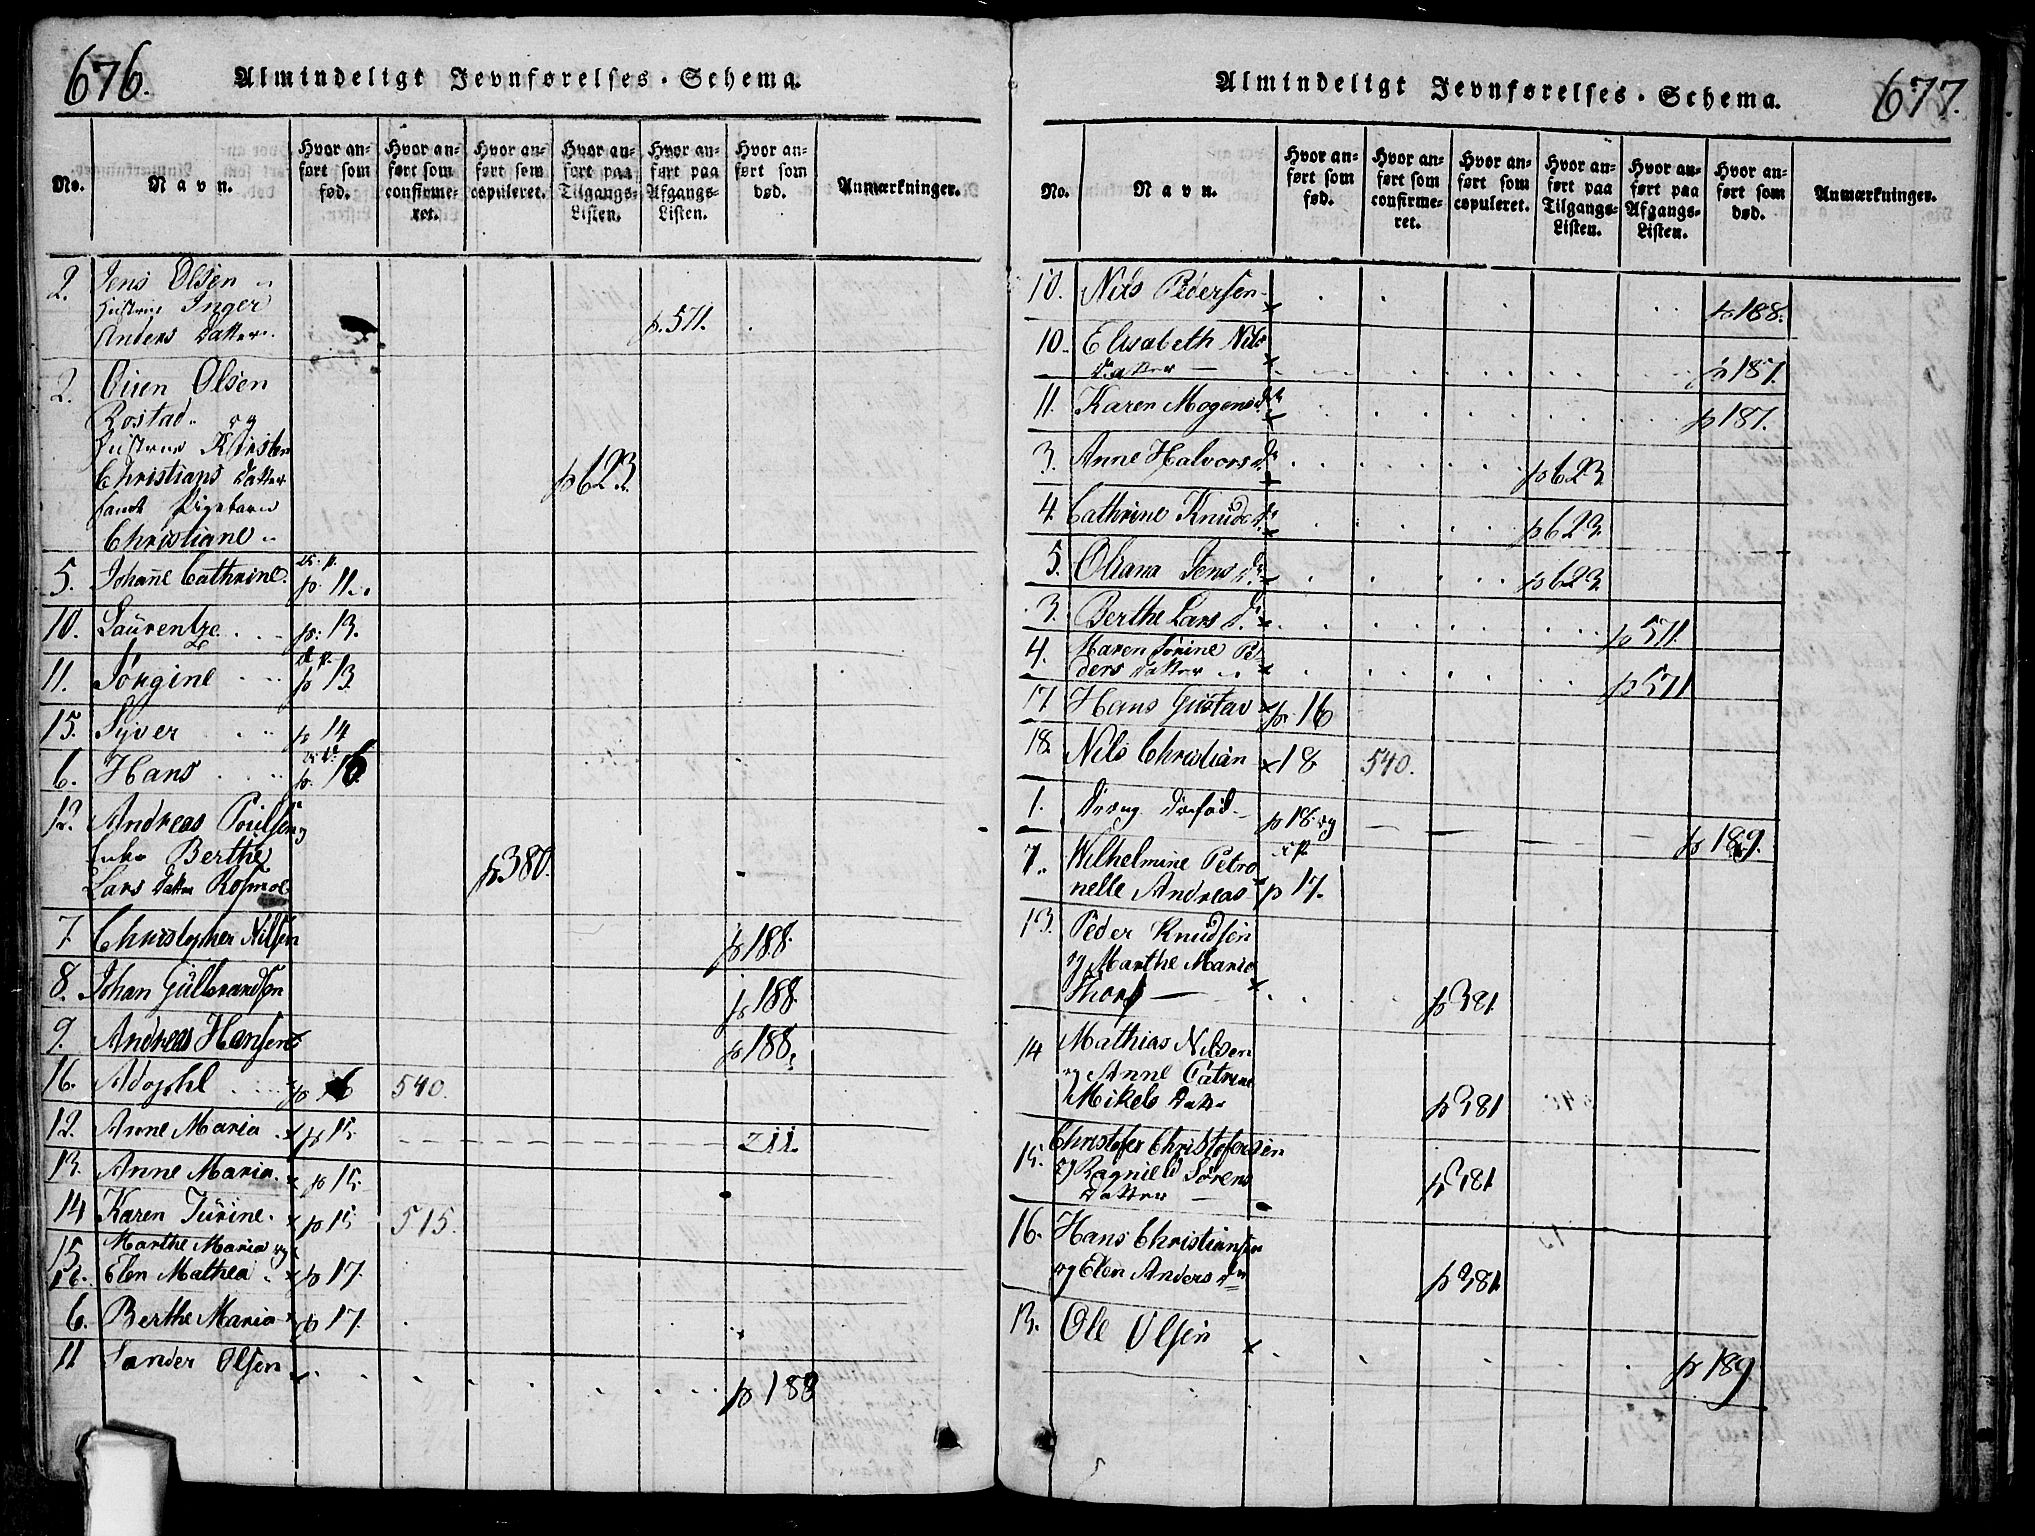 676.
Almindeligt Jevnførelses-Schema.
No.
Navn.
Hvor anført som fød.
Hvor anført som confirmeret.
Hvor anført som copuleret.
Hvor anført paa Tilgangs-Listen.
Hvor anført paa Afgangs-Listen.
Hvor anført som død.
Anmærkninger.
2. Jens Olsen
Hustrue Inger
Anders Datter p. 571.
2. Olsen
Rostad og
Hustrue Kirsten
Christians Datter p 623.
samt Pigebarn
Christiane
5. Johañe Cathrine. p 11.
10. Laurentze p: 13.
11. Jørgine p 13.
15. Syver p 14
6. Hans p. 16
12. Andreas Poulsen
Enke Berthe p 380.
Lars Datter
7. Christopher Nilsen p 188.
8. Johan Gulbrandsen p 188
9. Andreas Hansen p 188.
16. Adolphl p 16 540.
12. Anne Maria p 15 211.
13. Anne Maria p 15
14 Karen Turine p 15 515.
15 Marthe Maria og
16. Elen Mathea p 17.
6. Berthe Maria p 17.
11 Sander Olsen p 188
Almindeligt Jevnførelses-Schema.
677.
No.
Navn.
Hvor anført som fød.
Hvor anført som confirmeret.
Hvor anført som copuleret.
Hvor anført paa Tilgangs-Listen.
Hvor anført paa Afgangs-Listen.
Hvor anført som død.
Anmærkninger.
10. Nils Pedersen p 188.
10. Elisabeth Nils
Datter p 187.
11. Karen Mogens dr p 187.
3. Anne Halvors dr p 623
4. Cathrine Knuds dr p 623
5. Oliana Jens dr p 623
3. Berthe Lars d. p 571.
4. Maren Sørine Pe
ders Datter p 571
17 Hans Gustav p. 16
18. Nils Christian 18 540.
1. Dreng Dødfød p 18. og p 189.
7. Wilhelmine Petro
nelle Andreas p 17.
13. Peder Knudsen
og Marthe Marie
Thors p 381
14 Mathias Nilsen
og Anne Catrine
Mikels Datter p 381
15. Christofer Christofersen
og Ragnild Sørens
Datter p 381
16. Hans Christiansen
og Elen Anders dtr p 381
13. Ole Olsen p 189